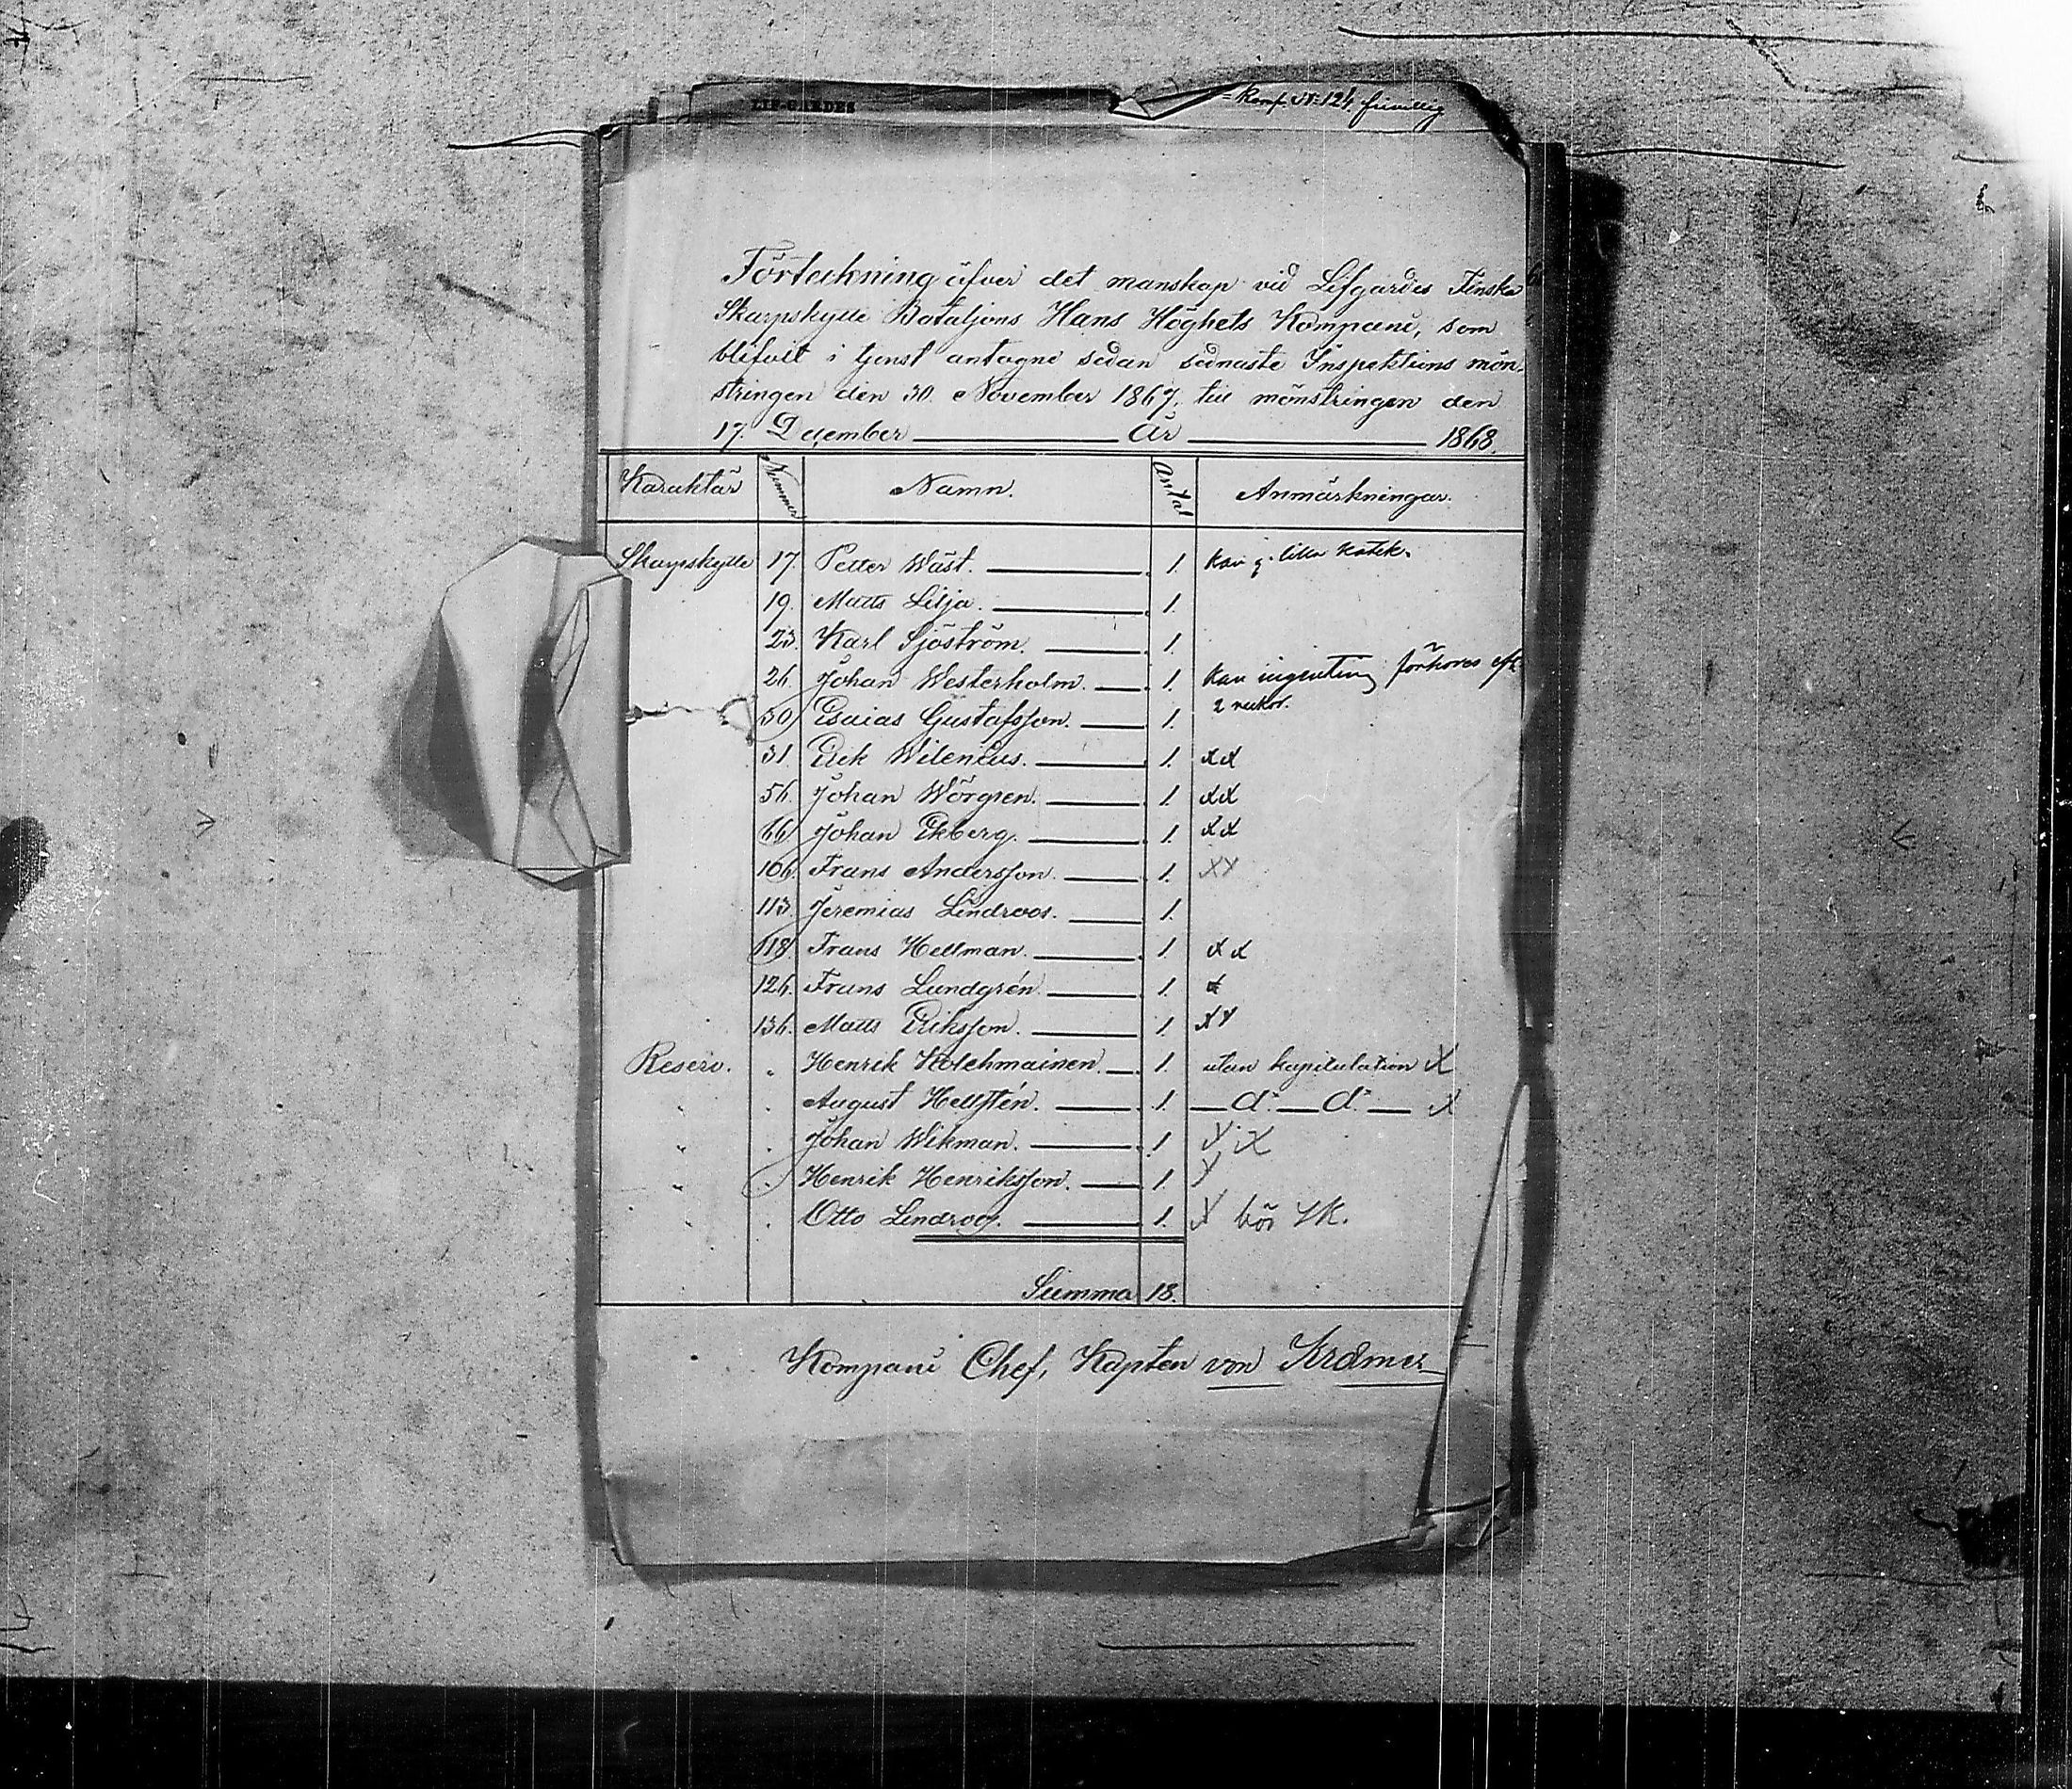 LIF-GARDES
Komp. N:124 frivillig
Förteckning öfver det manskap vid Lifgardes Finska
Skarpskytte Bataljons Hans Höghets Kompani, som
blifvit i tjenst antagne sedan sednaste Inspektions mön-
stringen den 30. November 1867. till mönstringen den
17. December År 1868.
Karaktär Nummer Namn. Antal Anmärkningar.
Skarpskytte 17. Petter Wäst. 1. kan g. lilla katek.
19. Matts Lilja. 1.
23. Karl Sjöström. 1.
26. Johan Westerholm. 1. kan ingenting förhöres eft.
2 veckor.
30. Esaias Gustafsson. 1.
31. Erik Wilenius. 1. xx
56. Johan Wörgren. 1. xx
66. Johan Ekberg. 1. xx
106. Frans Andersson. 1. xx
113. Jeremias Lindroos. 1.
118. Frans Hellman. 1. x x
126. Frans Lundgrén 1. x
136. Matts Eriksson. 1. xx
Reserv. " Henrik Kolehmainen. 1. utan kapitulation x
" " August Hellstén. 1. d:o d:o x
" " Johan Wikman. 1. x x
" " Henrik Henriksson. 1. x
" " Otto Lindroos. 1. x bör
Summa 18.
Kompani Chef, Kapten von Kræmer